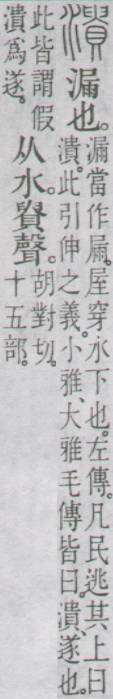 潰
漏也。
漏當作屚。屋穿水下也。左傳。凡民逃其上曰
潰。此引伸之義。小雅、大雅毛傳皆曰。潰、遂也。
此皆謂假
潰爲遂。
从水。𧵩聲。
胡對切。
十五部。